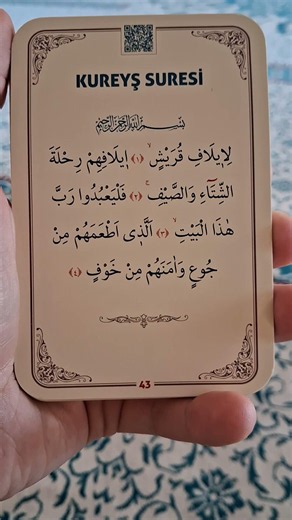 KUREYŞ SURESİ
بِسْمِ اللّٰهِ الرَّحْمٰنِ الرَّحِيمِ
لِاِيلَافِ قُرَيْشٍۙ ﴿١﴾ اٖيلَافِهِمْ رِحْلَةَ
الشِّتَٓاءِ وَالصَّيْفِۚ ﴿٢﴾ فَلْيَعْبُدُوا رَبَّ
هٰذَا الْبَيْتِۙ ﴿٣﴾ اَلَّذٖٓي اَطْعَمَهُمْ مِنْ
جُوعٍ وَاٰمَنَهُمْ مِنْ خَوْفٍ ﴿٤﴾
43